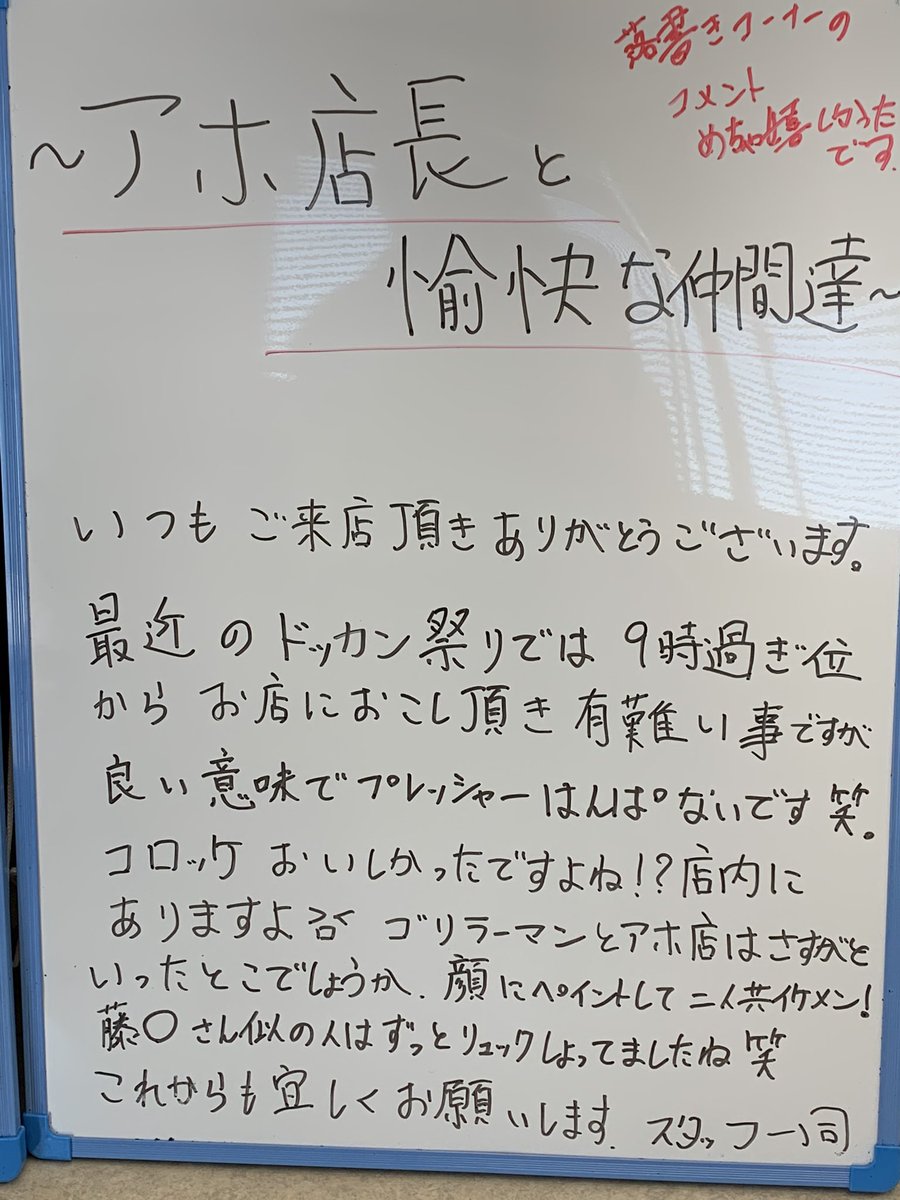 落書きコーナーの
コメント
めちゃ嬉しかった
です
～アホ店長と
愉快な仲間達～
いつもご来店頂きありがとうございます。
最近のドッカン祭りでは9時過ぎ位
からお店におこし頂き有難い事ですが
良い意味でプレッシャーはんぱないです笑。
コロッケおいしかったですよね!?店内に
ありますよ ゴリラーマンとアホ店はさすがと
いったとこでしょうか、顔にペイントして二人共イケメン!
藤〇さん似の人はずっとリュックしょってましたね笑
これからも宜しくお願いします。スタッフ一同